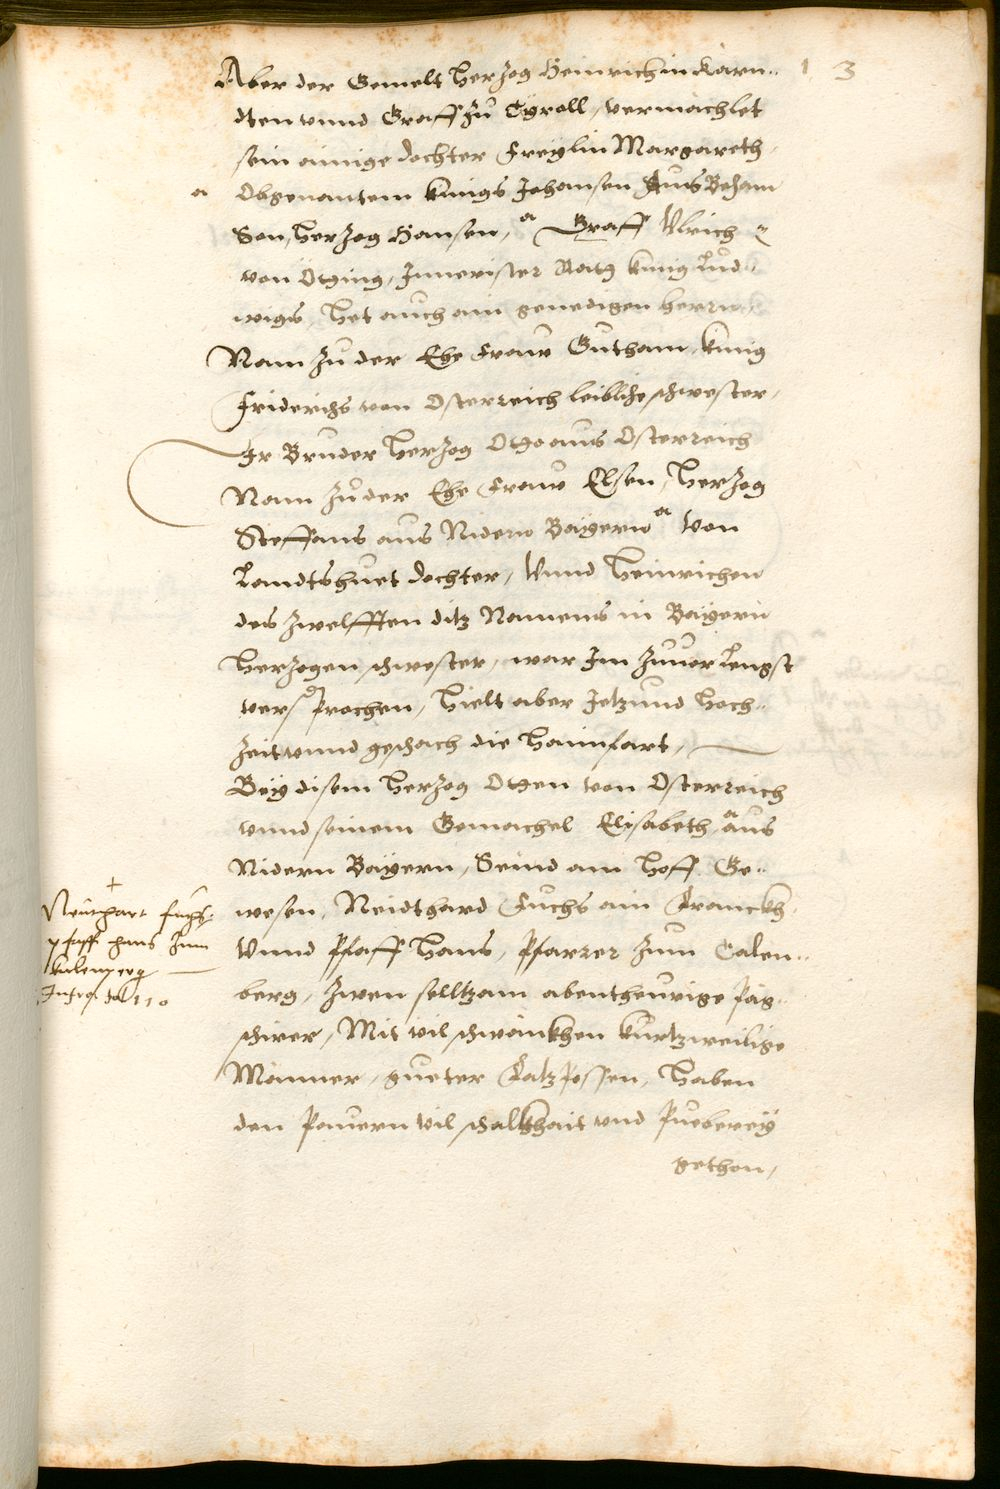 1 3
Aber der Gemelt Herzog Heinrich in Kärn=
dten vnnd Graff Zu Tyroll, vermächlet
sein ainige dochter Freylin Margareth,
Obgenantem kunigs Johansen Aus Beham
Son, Herzog Hansen, Graff Vlrich
von Otging, Innerister Ratg kunig Lud=
wigs, Het auch ain genedigen herrn
Nam Zu der Ehe Fraw Gutham, kunig
Friderichs von Osterreich leibliche schwester,
Ir Bruder Herzog Otho aus Osterreich
Nam Zu der Ehe Fraw Elsen, Herzog
Steffans aus Nidern Bayern Von
Landtshuet dochter, Vnnd Heinrichen
des Zwelfften ditz Namens in Bayern
Herzogen schwester, war Im Zuuor Lengst
versprochen, Hielt aber Jetzund Hoch=
Zeit vnnd geschach die Haimfart,
Bey disem Herzog Othen von Osterreich
vnnd seinem Gemachel Elisabeth aus
Nidern Bayern, Seind am Hoff Ge=
wesen, Neidthard Fuchs ain Franckh,
Vnnd Pfaff Hans, Pfarrer Zum Calen=
berg, Zwen selltzam abentheurige
Mit vil schwänkhen kurtzweilige
Männer, gueter Fatzpossen, Haben
den Pauern vil schalkhait vnd Pueberey
gethon,
Neithart fuchs
pfaff hans Zum
kalenperg
Infra fol 110